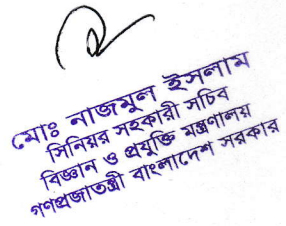 মোঃ নাজমুল ইসলাম
সিনিয়র সহকারী সচিব
বিজ্ঞান ও প্রযুক্তি মন্ত্রণালয়
গণপ্রজাতন্ত্রী বাংলাদেশ সরকার